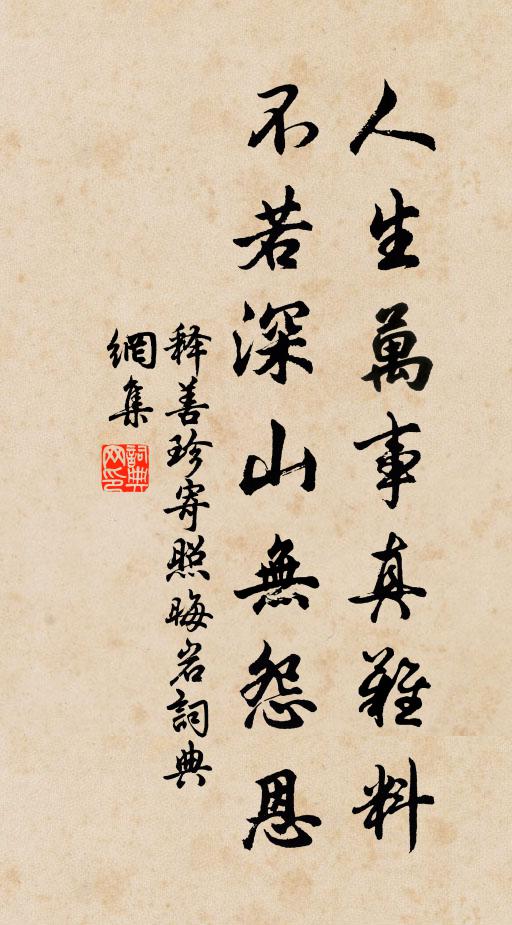 人生萬事真難料
不若深山無怨恩
释善珍寄照晦岩詞典
網集
詞典網印